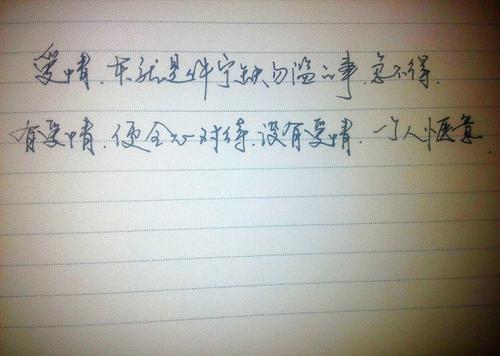 爱情,本就是件宁缺勿滥的事,急不得.
有爱情,便全心对待,没有爱情,一个人惬意.